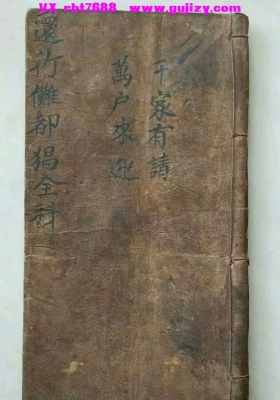 VX：cht7688  www.gujizy.com
千家有請
萬户來迎
還竹儺都猖全科